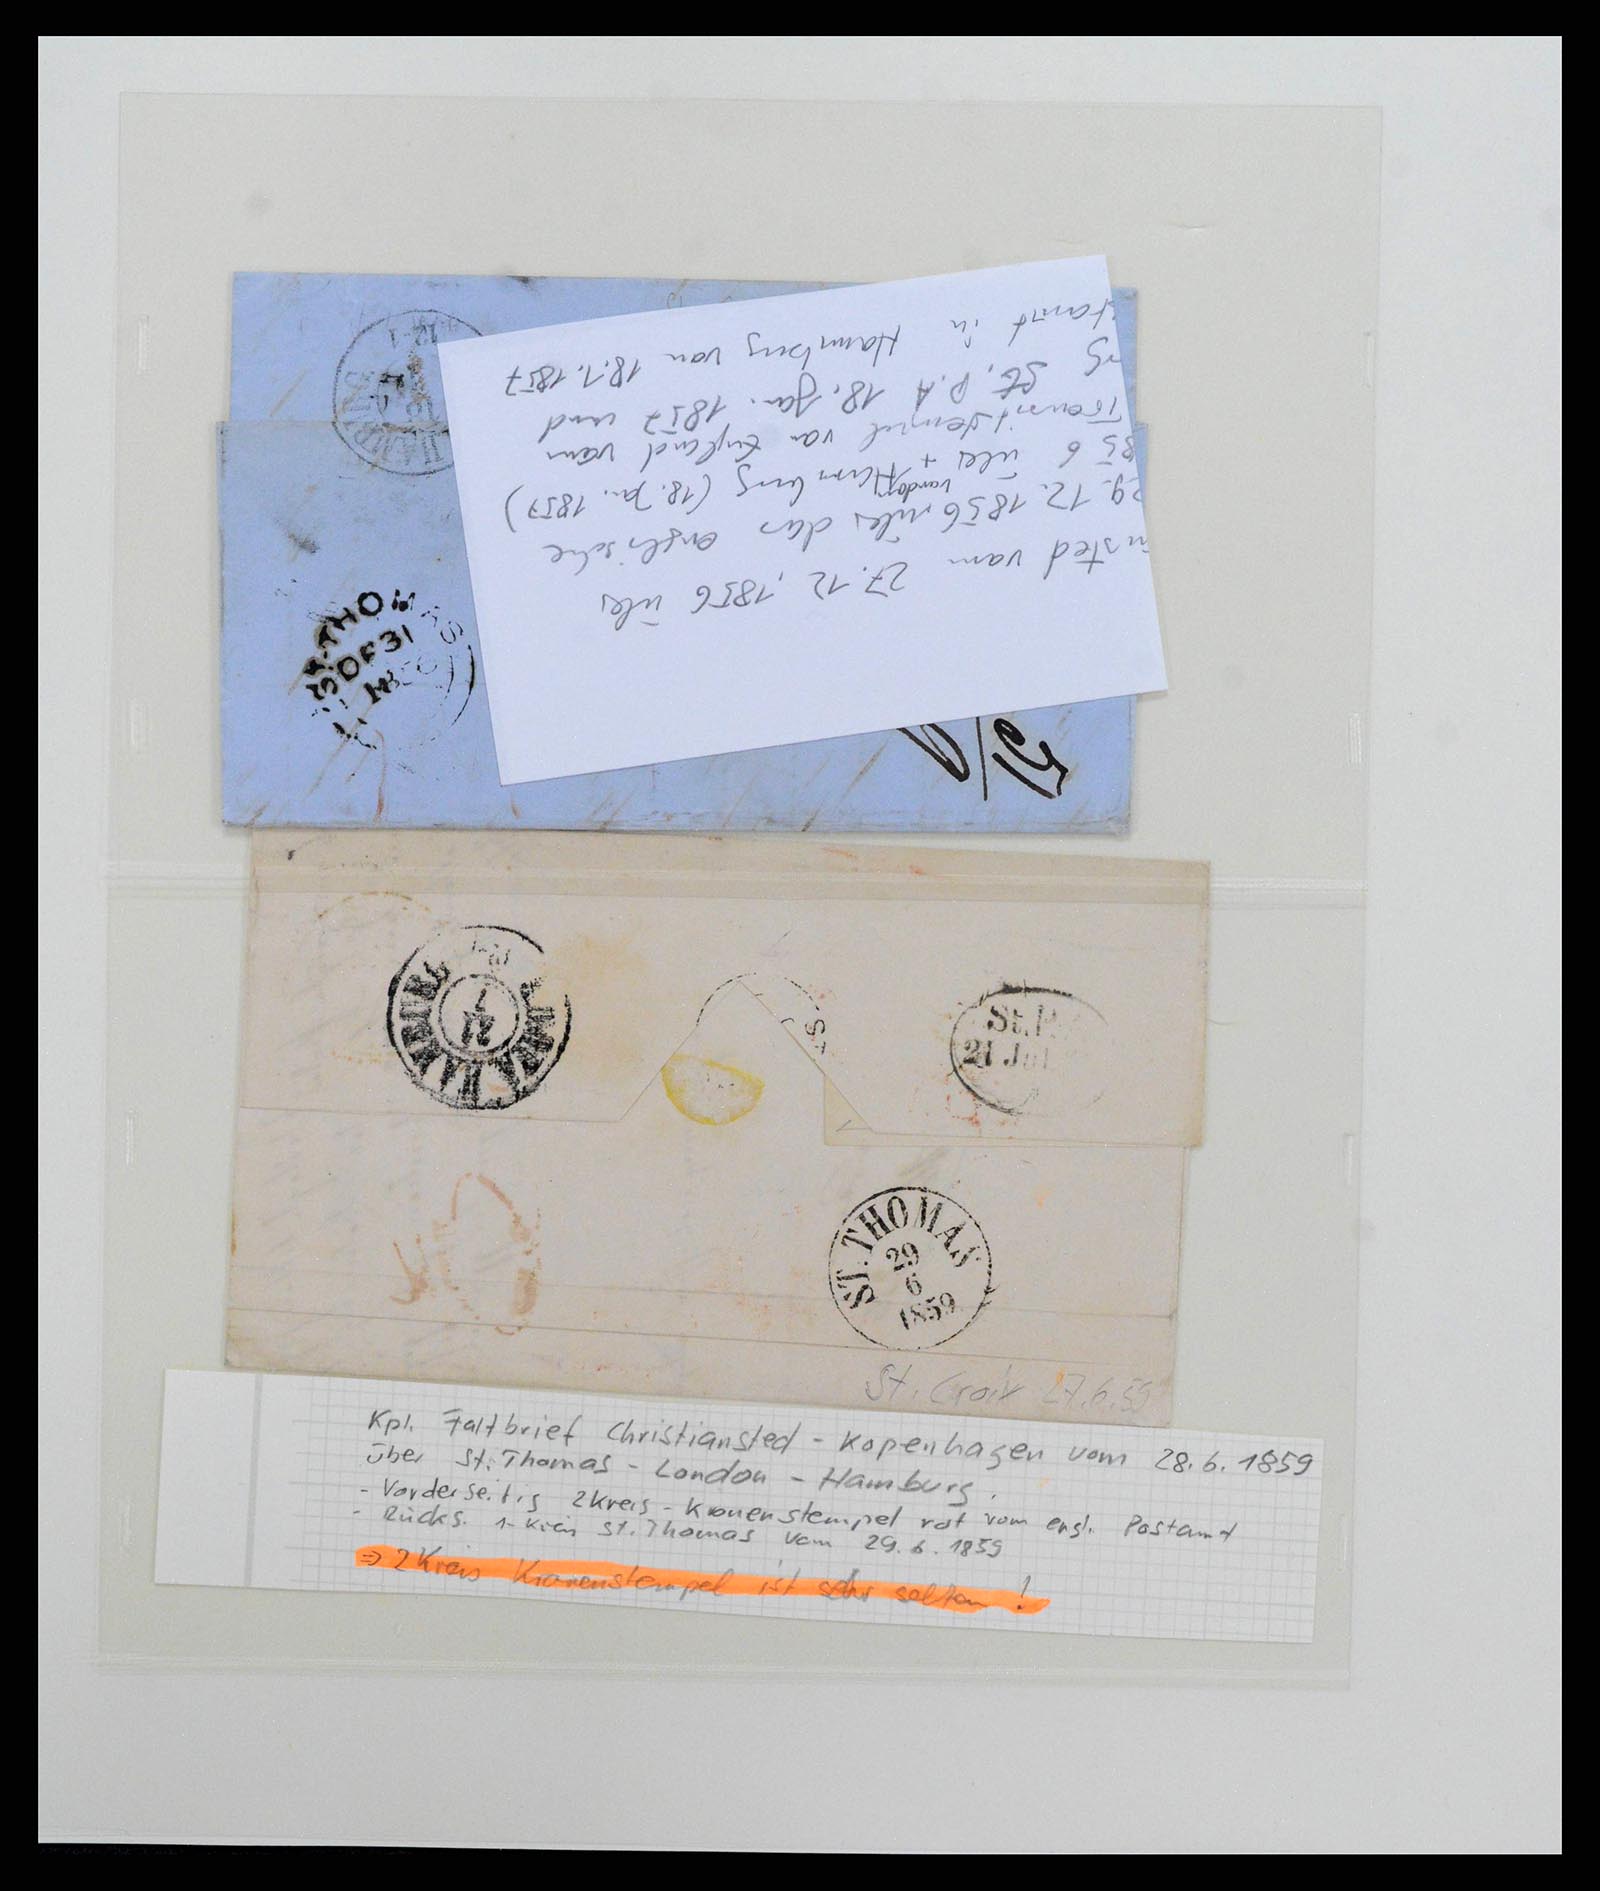 insted vom 27.12.1856 über
29.12.1856 über das englische
1856 über + London Hamburg (18. Jan. 1857)
Transitstempel von England vom
St. P.A 18. Jan. 1857 und
stamt in Hamburg von 18.1.1857
HAMBURG
12-1
ST-THOMAS
DE 31
HAMBURG
21
7
St. P.
21 Jul
ST. THOMAS
29
6
1859
St. Croix 27.6.59
Kpl. Faltbrief Christiansted - Kopenhagen vom 28.6.1859
über St. Thomas - London - Hamburg.
- Vorderseitig 2Kreis - Kronenstempel rot vom engl. Postamt
- Rücks. 1-Kreis St. Thomas vom 29.6.1859
⇒ 2Kreis Kronenstempel ist sehr selten!